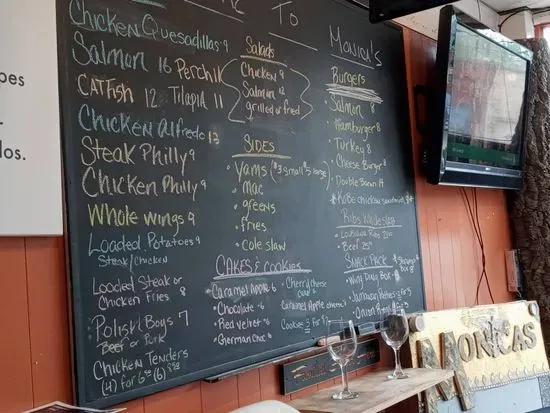 To
Monica's
Chicken Quesadillas 9
Salmon 16 Perch 12
Catfish 12 Tilapia 11
Chicken Alfredo 13
Steak Philly 9
Chicken Philly 9
Whole wings 9
Loaded Potatoes 9
Steak/chicken
Loaded Steak or
Chicken Fries 8
Polish Boys 7
Beef or Pork
Chicken Tenders
(4) for 6.50 (6) 8.50
Salads
Chicken 9
Salmon 12
grilled or fried
SIDES
• Yams ($3 small $5 large)
• mac
• greens
• fries
• cole slaw
CAKES & COOKIES
• Caramel Apple 6
• Chocolate 6
• Red velvet 6
• German Choc 6
• Cherry cheese
Caramel Apple cheese
Cookies 2 for
Burgers
• Salmon 8
• Hamburger 8
• Turkey 8
• Cheese Burger
• Double Bacon 14
Kobe chicken sandwich
Ribs Wide slab
• Louisiana Ribs
• Beef 25
SNACK PACK
Serving
box 8
• Wing Ding Box
• Jamaican Patties for 5
• Onion Rings
ipes
r
los.
MONICAS